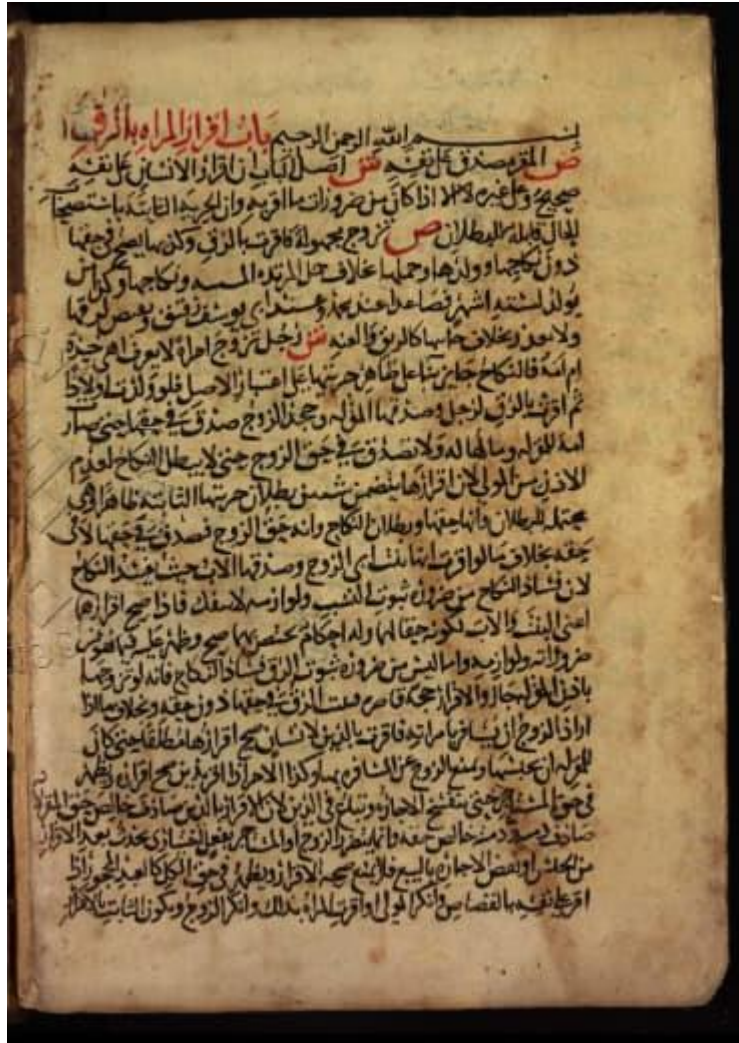 بسم الله الرحمن الرحيم باب اقرار المراه بالرق
ص المقر مصدق على نفسه ش اصل الباب ان اقرار الانسان على نفسه
صحيح وعلى غيره لا الا اذا كان من ضرورات ما اقر به وان الحرية الثابتة باستصحاب
الحال قابلة للبطلان ص تزوج مجهولة فاقرت بالرق وكذبها يصح في حقها
دون نكاحها وولدها وحملها بخلاف حمل المرتدة ونكاحها
يولد لستة اشهر فصاعدا عند محمد وعند ابي يوسف رقيق
ش رجل تزوج امراة لا يعرف اهي حرة
ام امة فالنكاح جايز بناء على ظاهر حريتها على اعتبار الاصل فلو ولدت اولادا
ثم اقرت بالرق لرجل وصدقها المقر له وجحد الزوج صدقت في حقها حتى صارت
امة للمقر له ومالها له ولا تصدق في حق الزوج حتى لا يبطل النكاح لعدم
الاذن من المولى لان اقرارها يتضمن شيئين بطلان حريتها الثابتة ظاهرا وهي
محتملة للبطلان وانها حقها وبطلان النكاح وانه حق الزوج فصدقت في حقها لا في
حقه بخلاف ما لو اقرت ابي الزوج وصدقها الاب حيث يفسد النكاح
لان فساد النكاح من ضرورة ثبوت النسب ولوازمه لا ينفك فاذا صح اقرارهما
اعني البنت والاب لكونه حقا لهما وله احكام يختص بهما صح وظهر
ضروراته ولوازمه واما ليس من ضرورة ثبوت الرق فساد النكاح فانه لو تزوجها
باذن المقر له جاز والاقرار حجة قاصرة فثبت الرق في حقها دون حقه وبخلاف ما اذا
اراد الزوج ان يسافر بامراته فاقرت بالدين لانسان صح اقرارها مطلقا حتى كان
للمقر له ان يحبسها ويمنع الزوج عن المسافرة بها وكذا الاجر اذا اقر بدين صح اقراره وظهر
في حق المستاجر حتى تنفسخ الاجارة وتباع في الدين لان الاقرار بالدين صادف خالص حق المقر
صادف ذمته خالص حقه وانما يتضرر الزوج او المستاجر بفعل اختياري يحدث بعد الاقرار
من الحبس او نقض الاجارة بالبيع فلا يمنع صحة الاقرار ويظهر في حق الكل كالعبد المحجور اذا
اقر على نفسه بالقصاص وانكر المولى او اقرت المراة بذلك وانكر الزوج ويكون الثابت بالاقرار